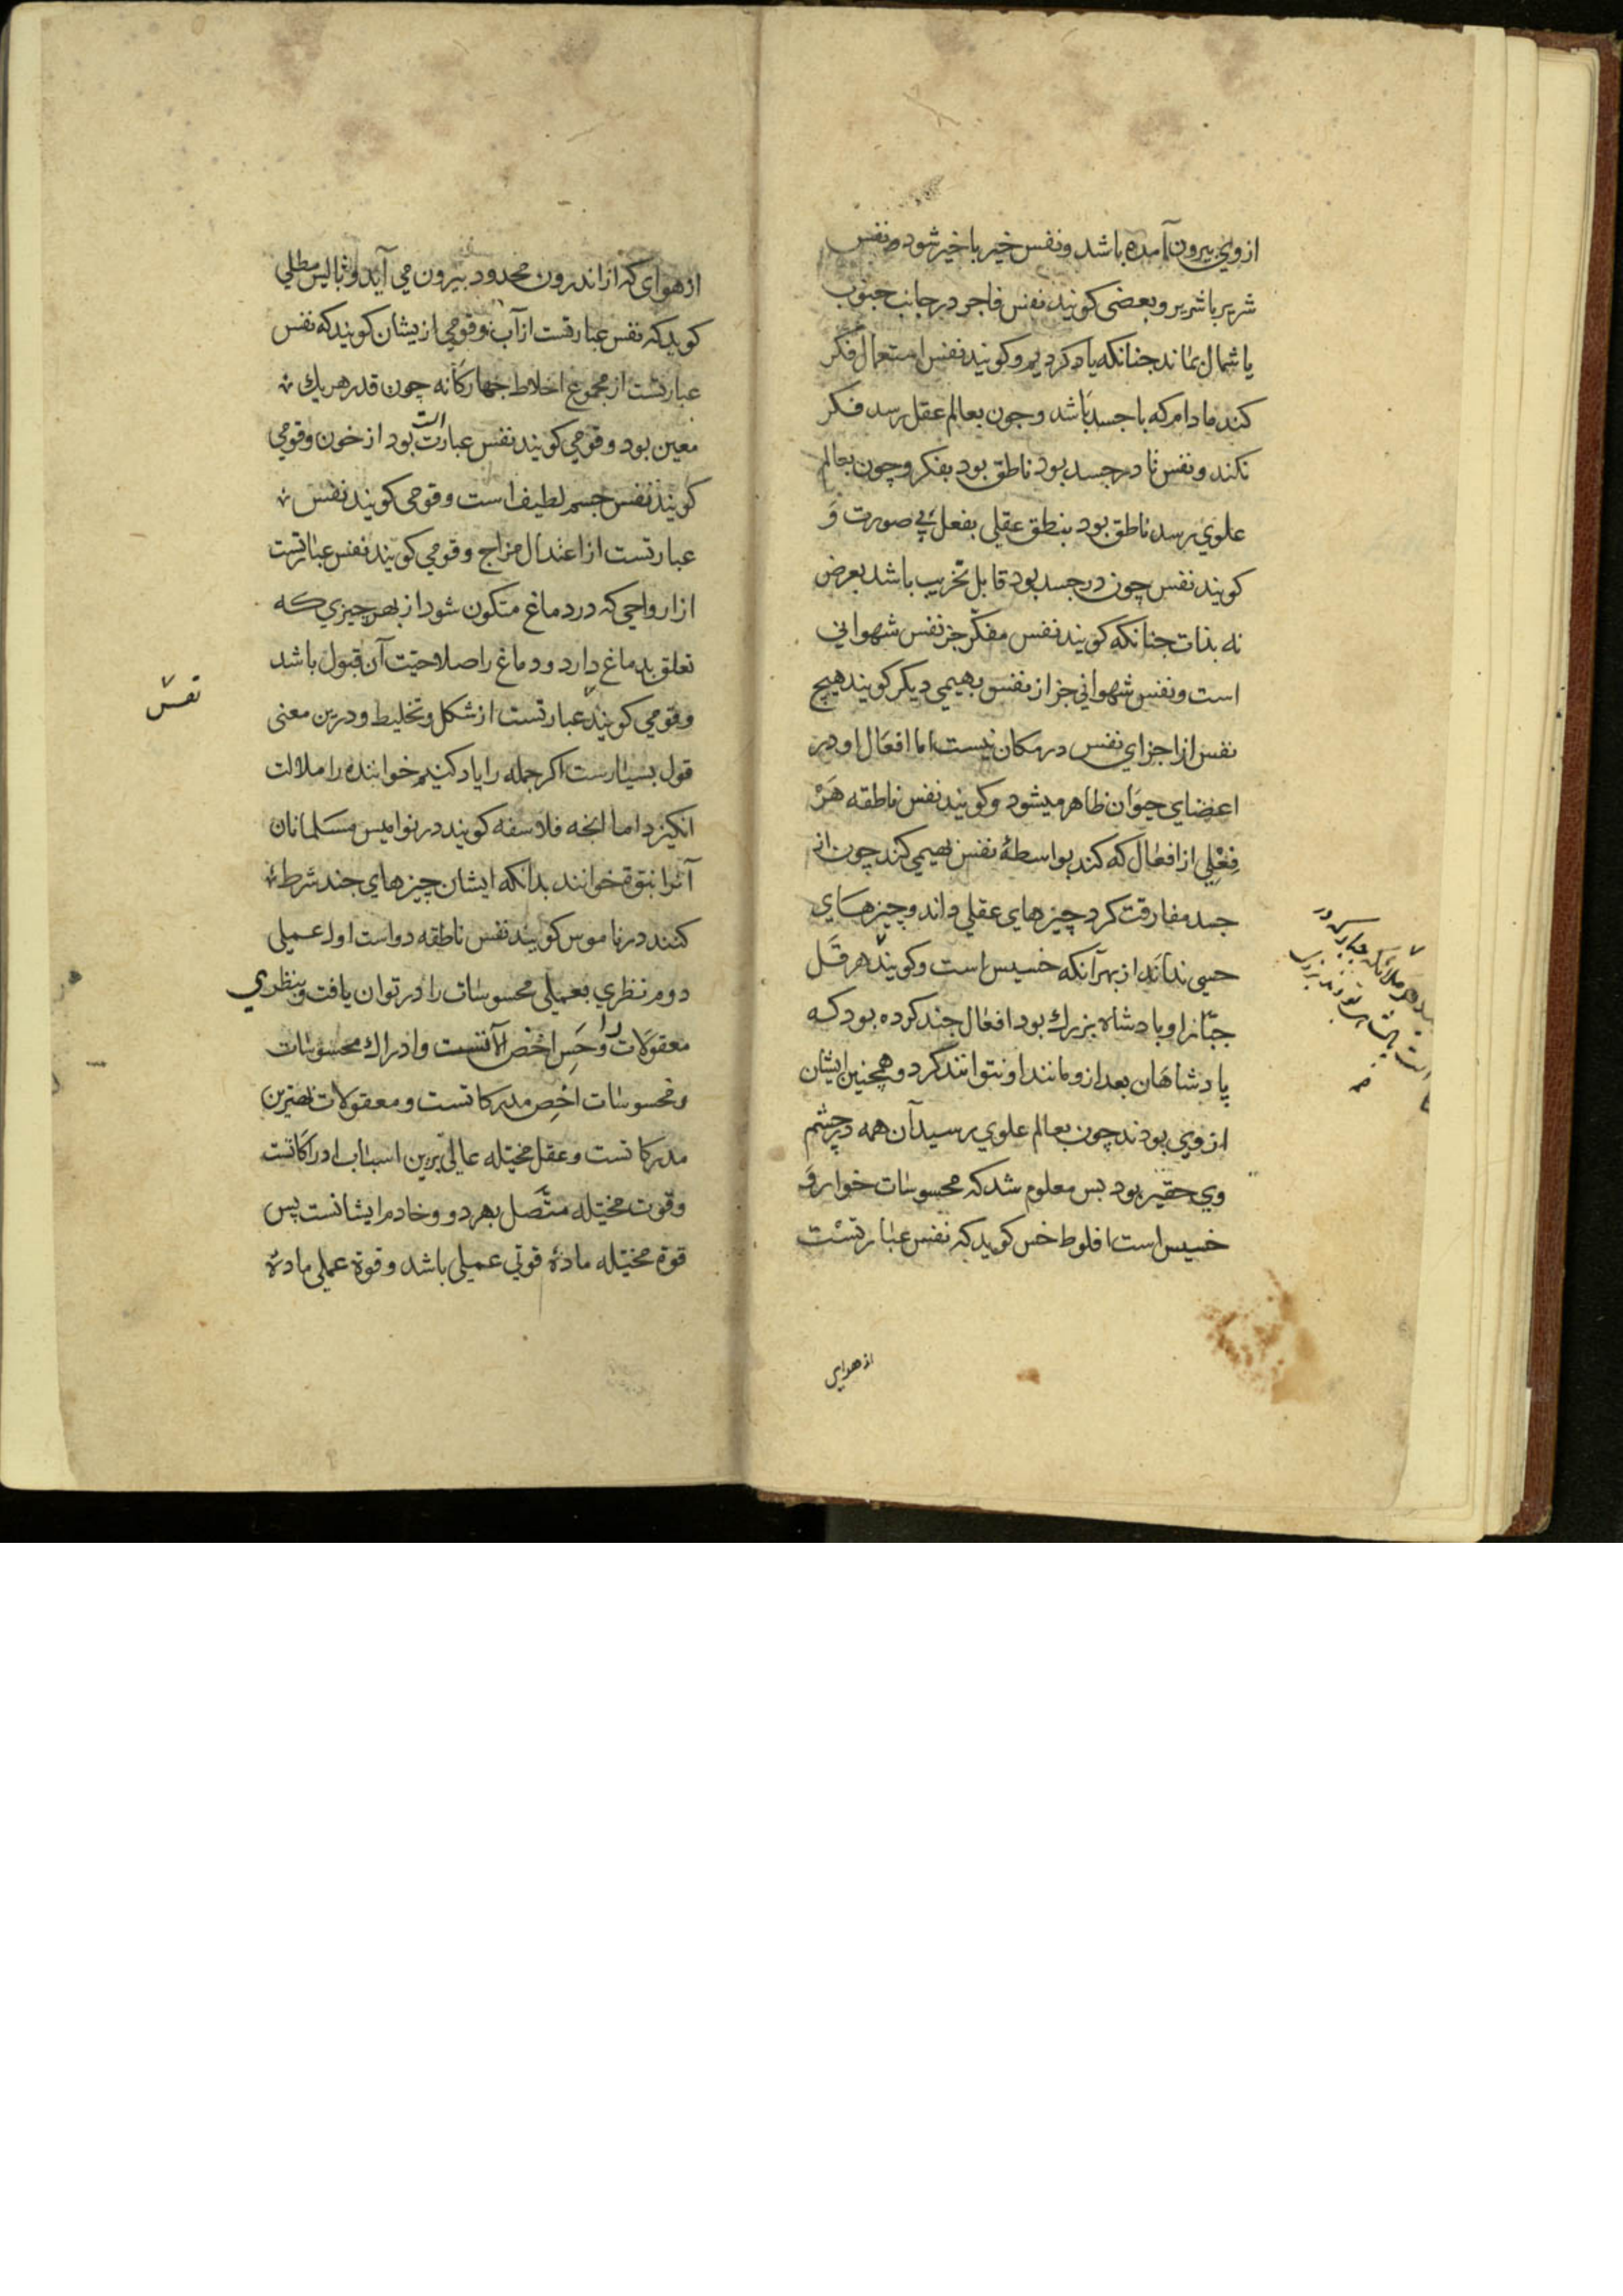 از وی بیرون آمده باشد و نفس خیر با خیر شود و نفس
شریر با شریر و بعضی کویند نفس فاجر در جانب جنوب
یا شمال بماند جنانکه یاد کردیم و کویند نفس استعمال فکر
کند مادام که با جسد باشد و جون بعالم عقل رسد فکر
نکند و نفس تا در جسد بود ناطق بود بفکر و چون بعالم
علوی رسد ناطق بود بنطق عقلی بفعل بی صورت و
کویند نفس چون در جسد بود قابل تخریب باشد بعرض
نه بذات جنانکه کویند نفس مفکّر جز نفس شهوانی
است و نفس شهوانی جز از نفس بهیمی دیکر کویند هیچ
نفس از اجزای نفس در مکان نیست اما افعال او در
اعضای حیوان ظاهر میشود و کویند نفس ناطقه هر
فعلی از افعال که کند بواسطهٔ نفس بهیمی کند چون از
جسد مفارقت کرد چیزهای عقلی داند و چیزهای
حسی نداند از بهر آنکه خسیس است و کویند هرقل
جبّار او پادشاه بزرك بود افعال جند کرده بود که
پادشاهان بعد ازو مانند او نتوانند کرد و همچنین ایشان
از وی بودند چون بعالم علوی رسید آن همه در چشم
وی حقیر بود بس معلوم شد که محسوسات خوار و
خسیس است افلوطخس کوید که نفس عبارتست
از هوای
از هوای که از اندرون محدود بیرون می آید و ثالیس مطلی
کوید که نفس عبارتست از آب و قومی ازیشان کویند که نفس
عبارتست از مجموع اخلاط جهارکانه چون قدر هر یك
معین بود و قومی کویند نفس عبارت است بود از خون و قومی
کویند نفس جسم لطیف است و قومی کویند نفس
عبارتست از اعتدال مزاج و قومی کویند نفس عبارتست
از ارواحی که در دماغ متکون شود از بهر چیزی که
تعلق بدماغ دارد و دماغ را صلاحیّت آن قبول باشد
و قومی کویند عبارتست از شکل و تخلیط و درین معنی
قول بسیارست اکر جمله را یاد کنیم خواننده را ملالت
انکیزد اما انچه فلاسفه کویند در نوامیس مسلمانان
آنرا نبوّة خوانند بدانکه ایشان چیزهای جند شرط
کنند در ناموس کویند نفس ناطقه دو است اول عملی
دوم نظری بعملی محسوسات را در توان یافت و بنظری
معقولات را و حس اخص آلاتست و ادراك محسوسات
و محسوسات اخص مدرکاتست و معقولات بهترین
مدرکاتست و عقل مخیّله عالی برین اسباب ادراکاتست
و قوت مخیّله متّصل بهر دو و خادم ایشانست پس
قوة مخیّله مادهٔ قوتی عملی باشد و قوة عملی مادهٔ
نفس